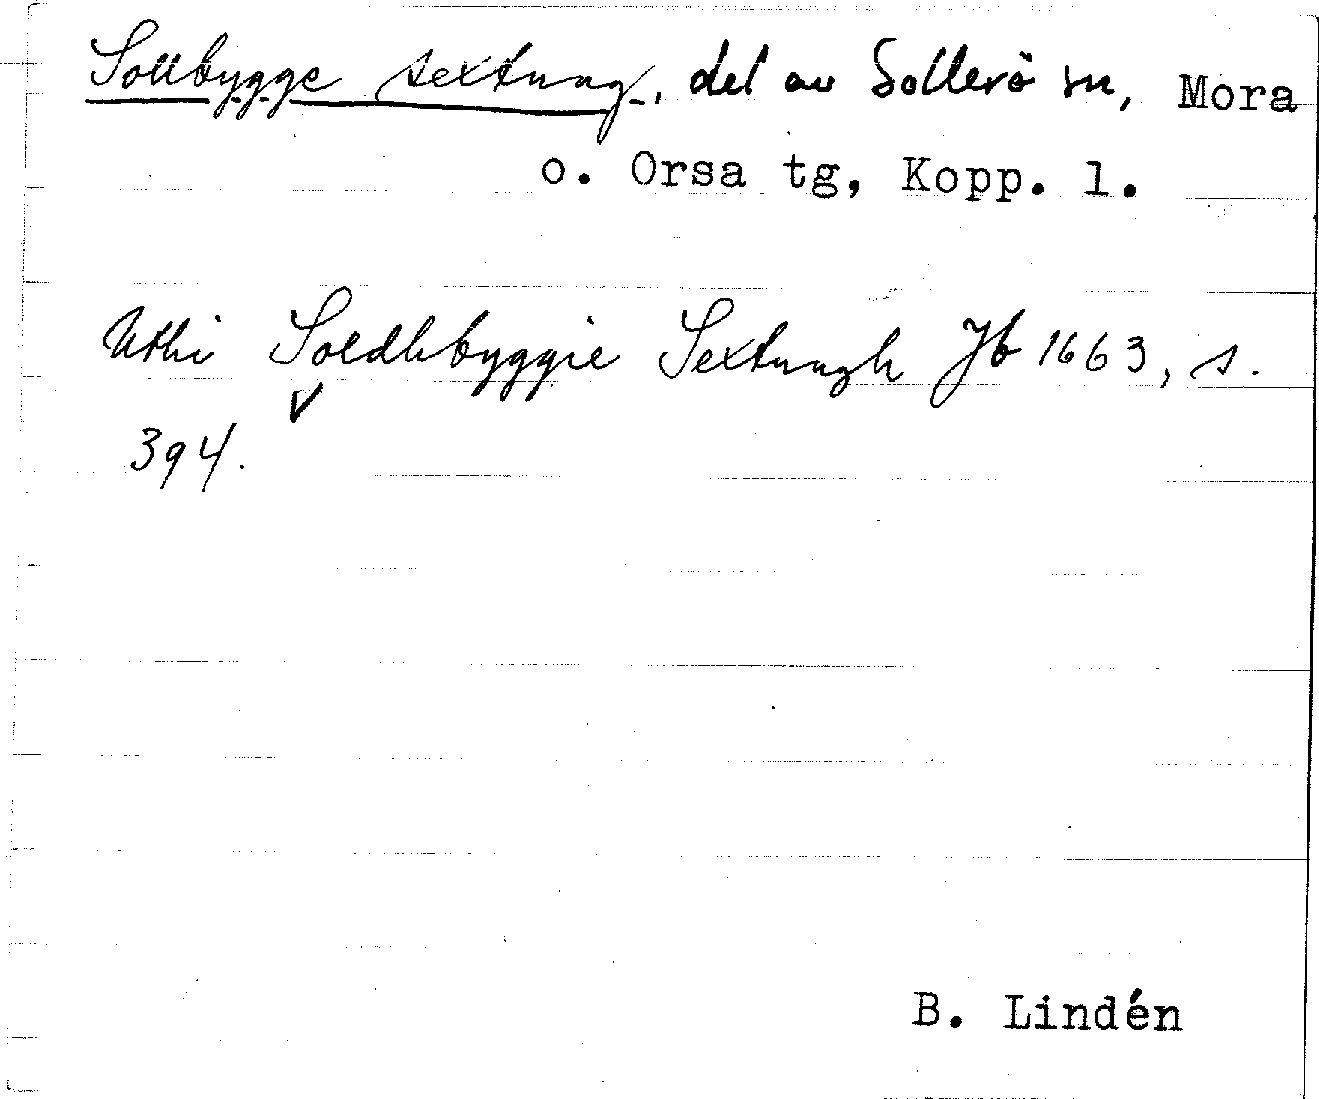 Sollbygge sextung, del av Sollerö sn, Mora
o. Orsa tg, Kopp. l.
Uthi Soldhbyggie Sextungh Jb 1663, s.
394.
B. Lindén